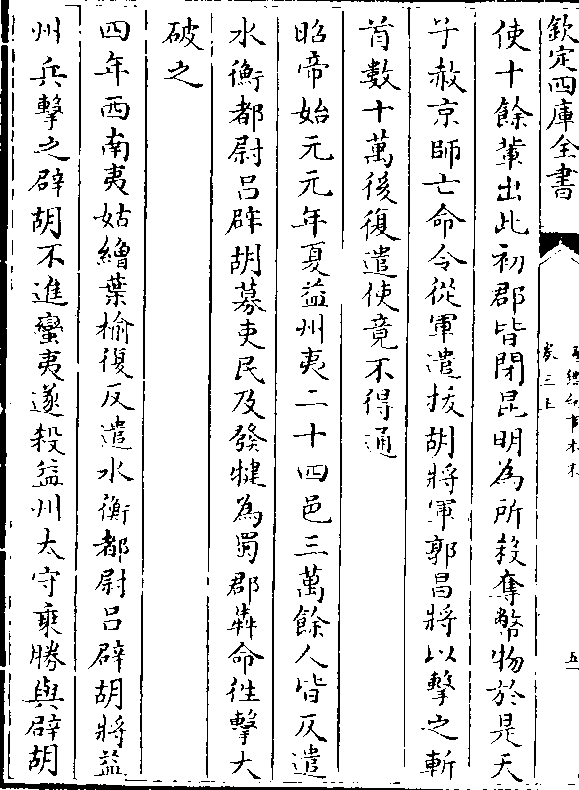 欽定四庫全書
卷三上
五
使十餘軰出此初郡皆閉昆明為所殺奪幣物於是天
子赦京師亡命令從軍遣拔胡將軍郭昌將以擊之斬
首數十萬後復遣使竟不得通
昭帝始元元年夏益州夷二十四邑三萬餘人皆反遣
水衡都尉吕辟胡募吏民及發犍為蜀郡犇命徃擊大
破之
四年西南夷姑繒葉榆復反遣水衡都尉吕辟胡將益
州兵擊之辟胡不進蠻夷遂殺益州大守乘勝與辟胡